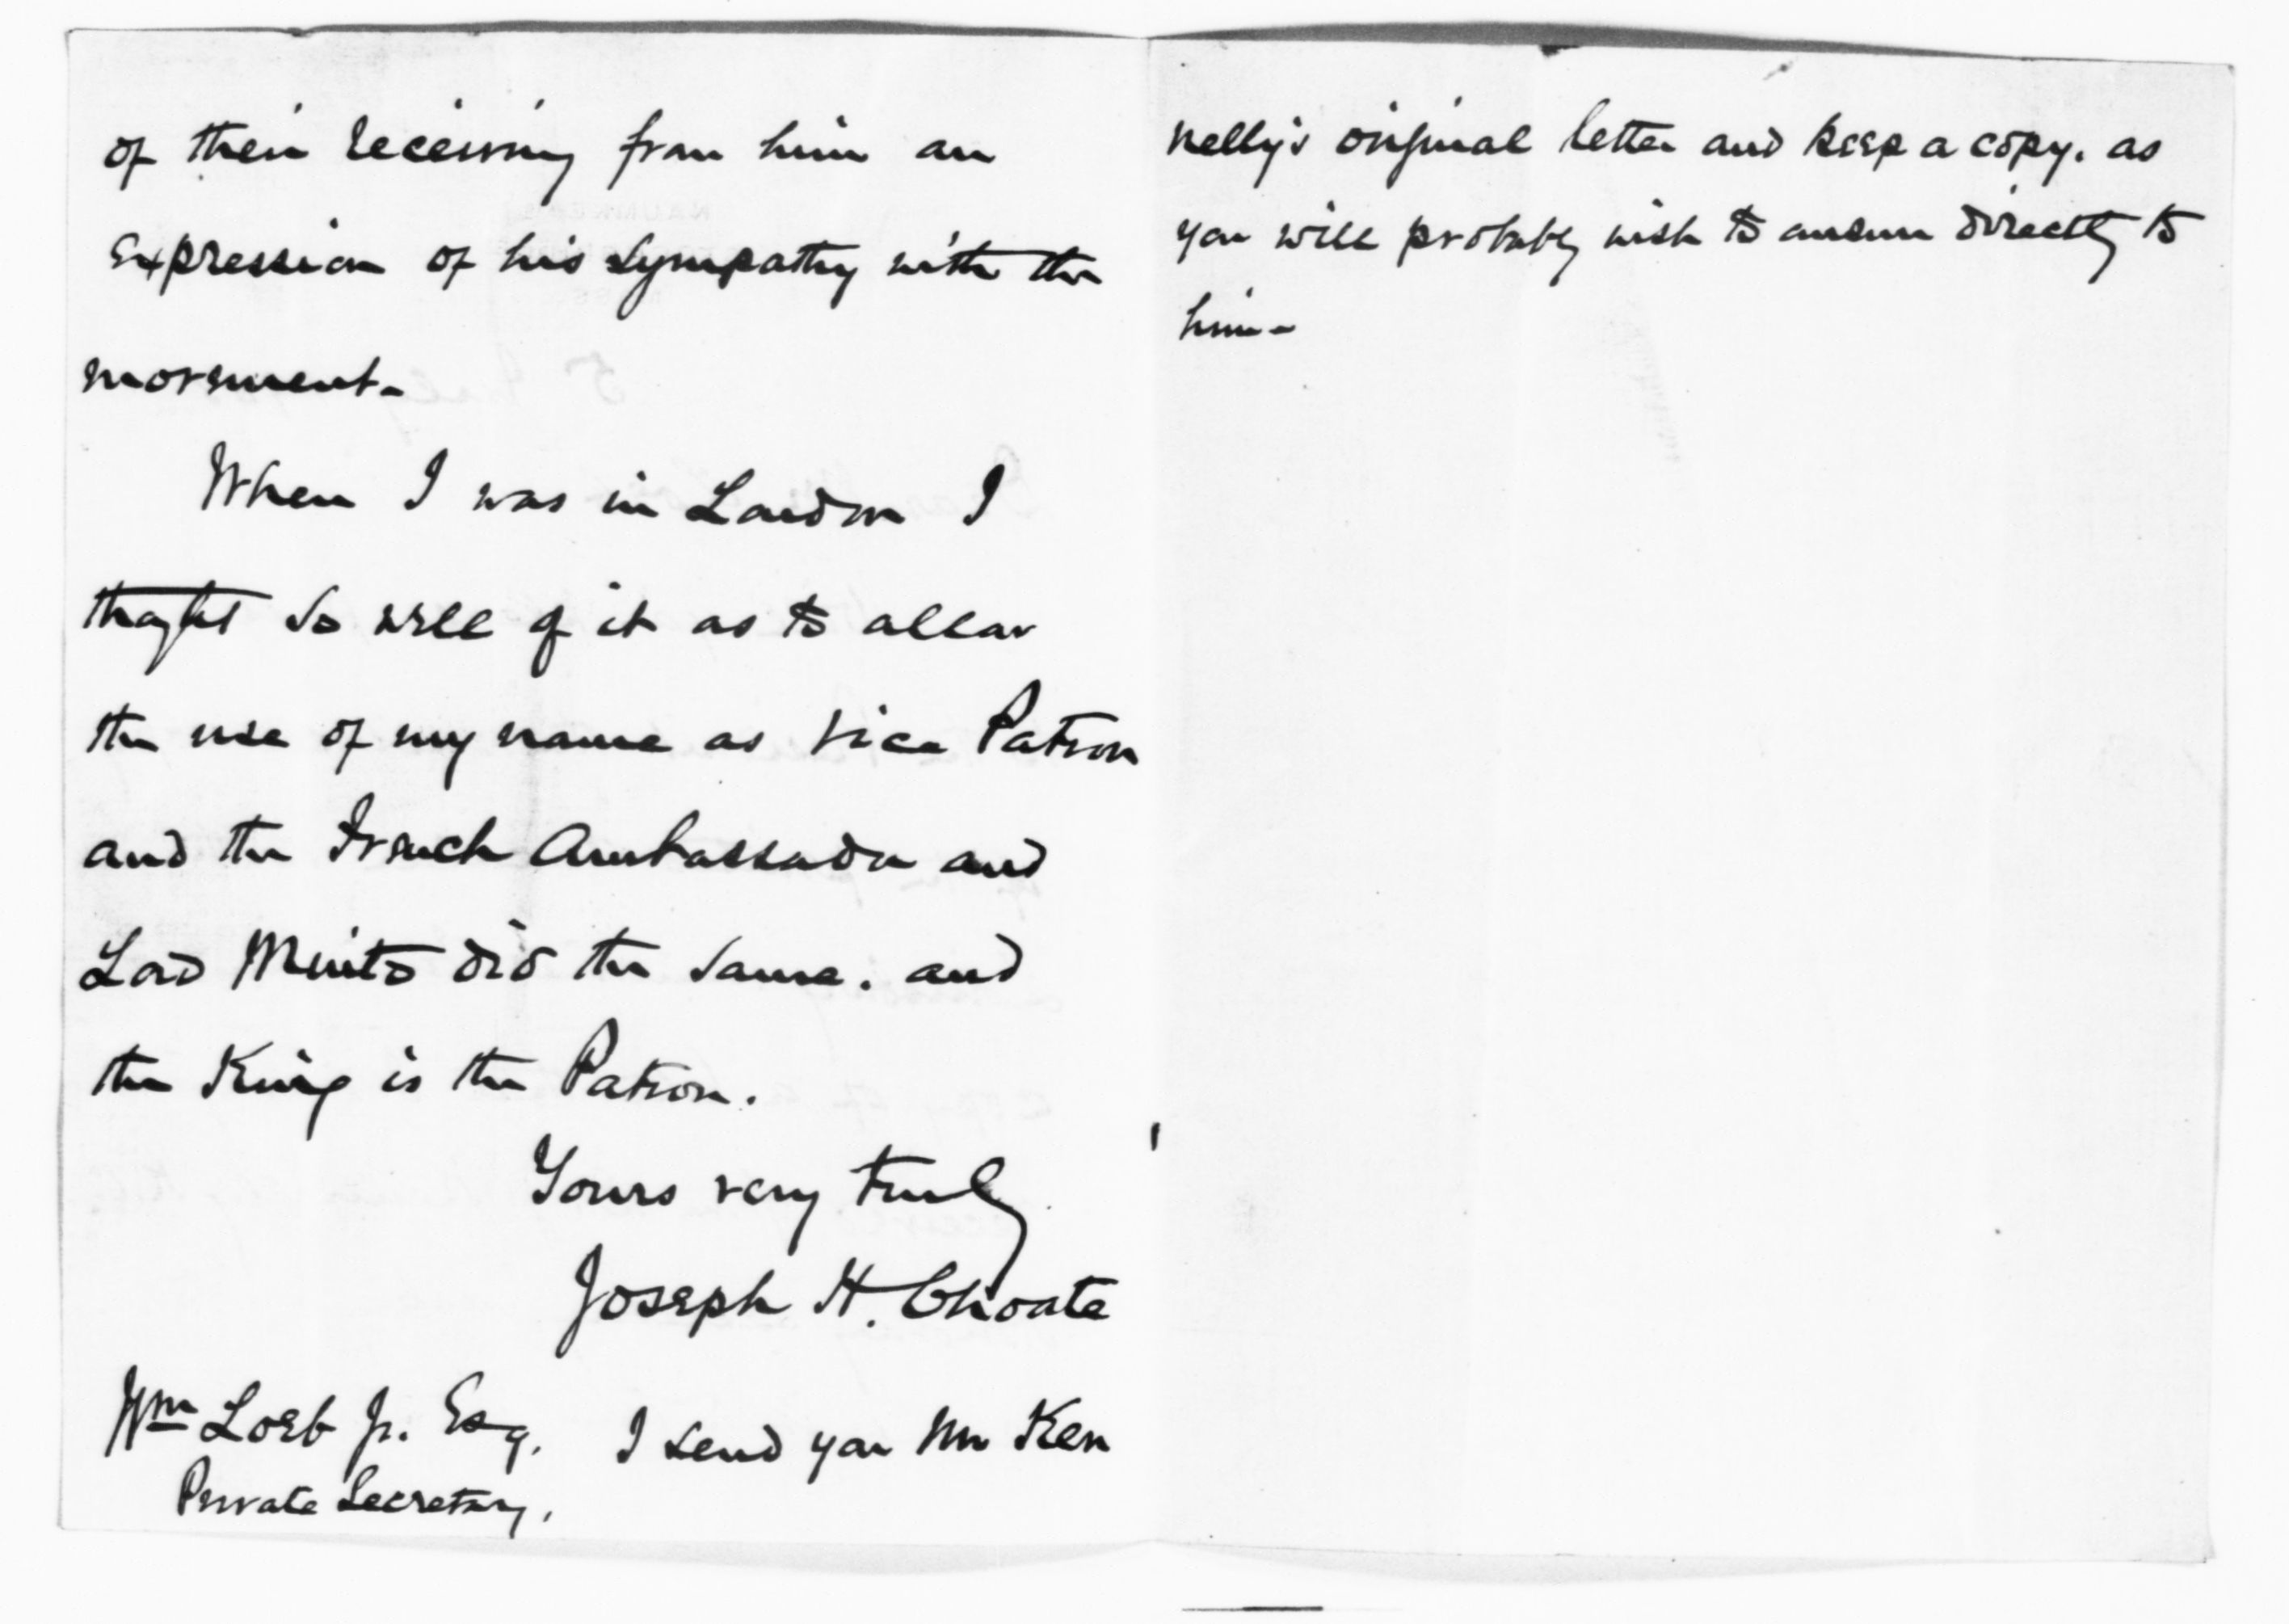 of their receiving from him an
expression of his sympathy with the
movement.
When I was in London I
thought so well of it as to allow
the use of my name as Vice Patron
and the French Ambassador and
Lord Minto did the same. and
the King is the Patron.
Yours very truly
Joseph H. Choate
Wm Loeb Jr. Esq.
Private Secretary.
I send you Mr Ken
nelly's original letter and keep a copy. as
you will probably wish to answer directly to
him.